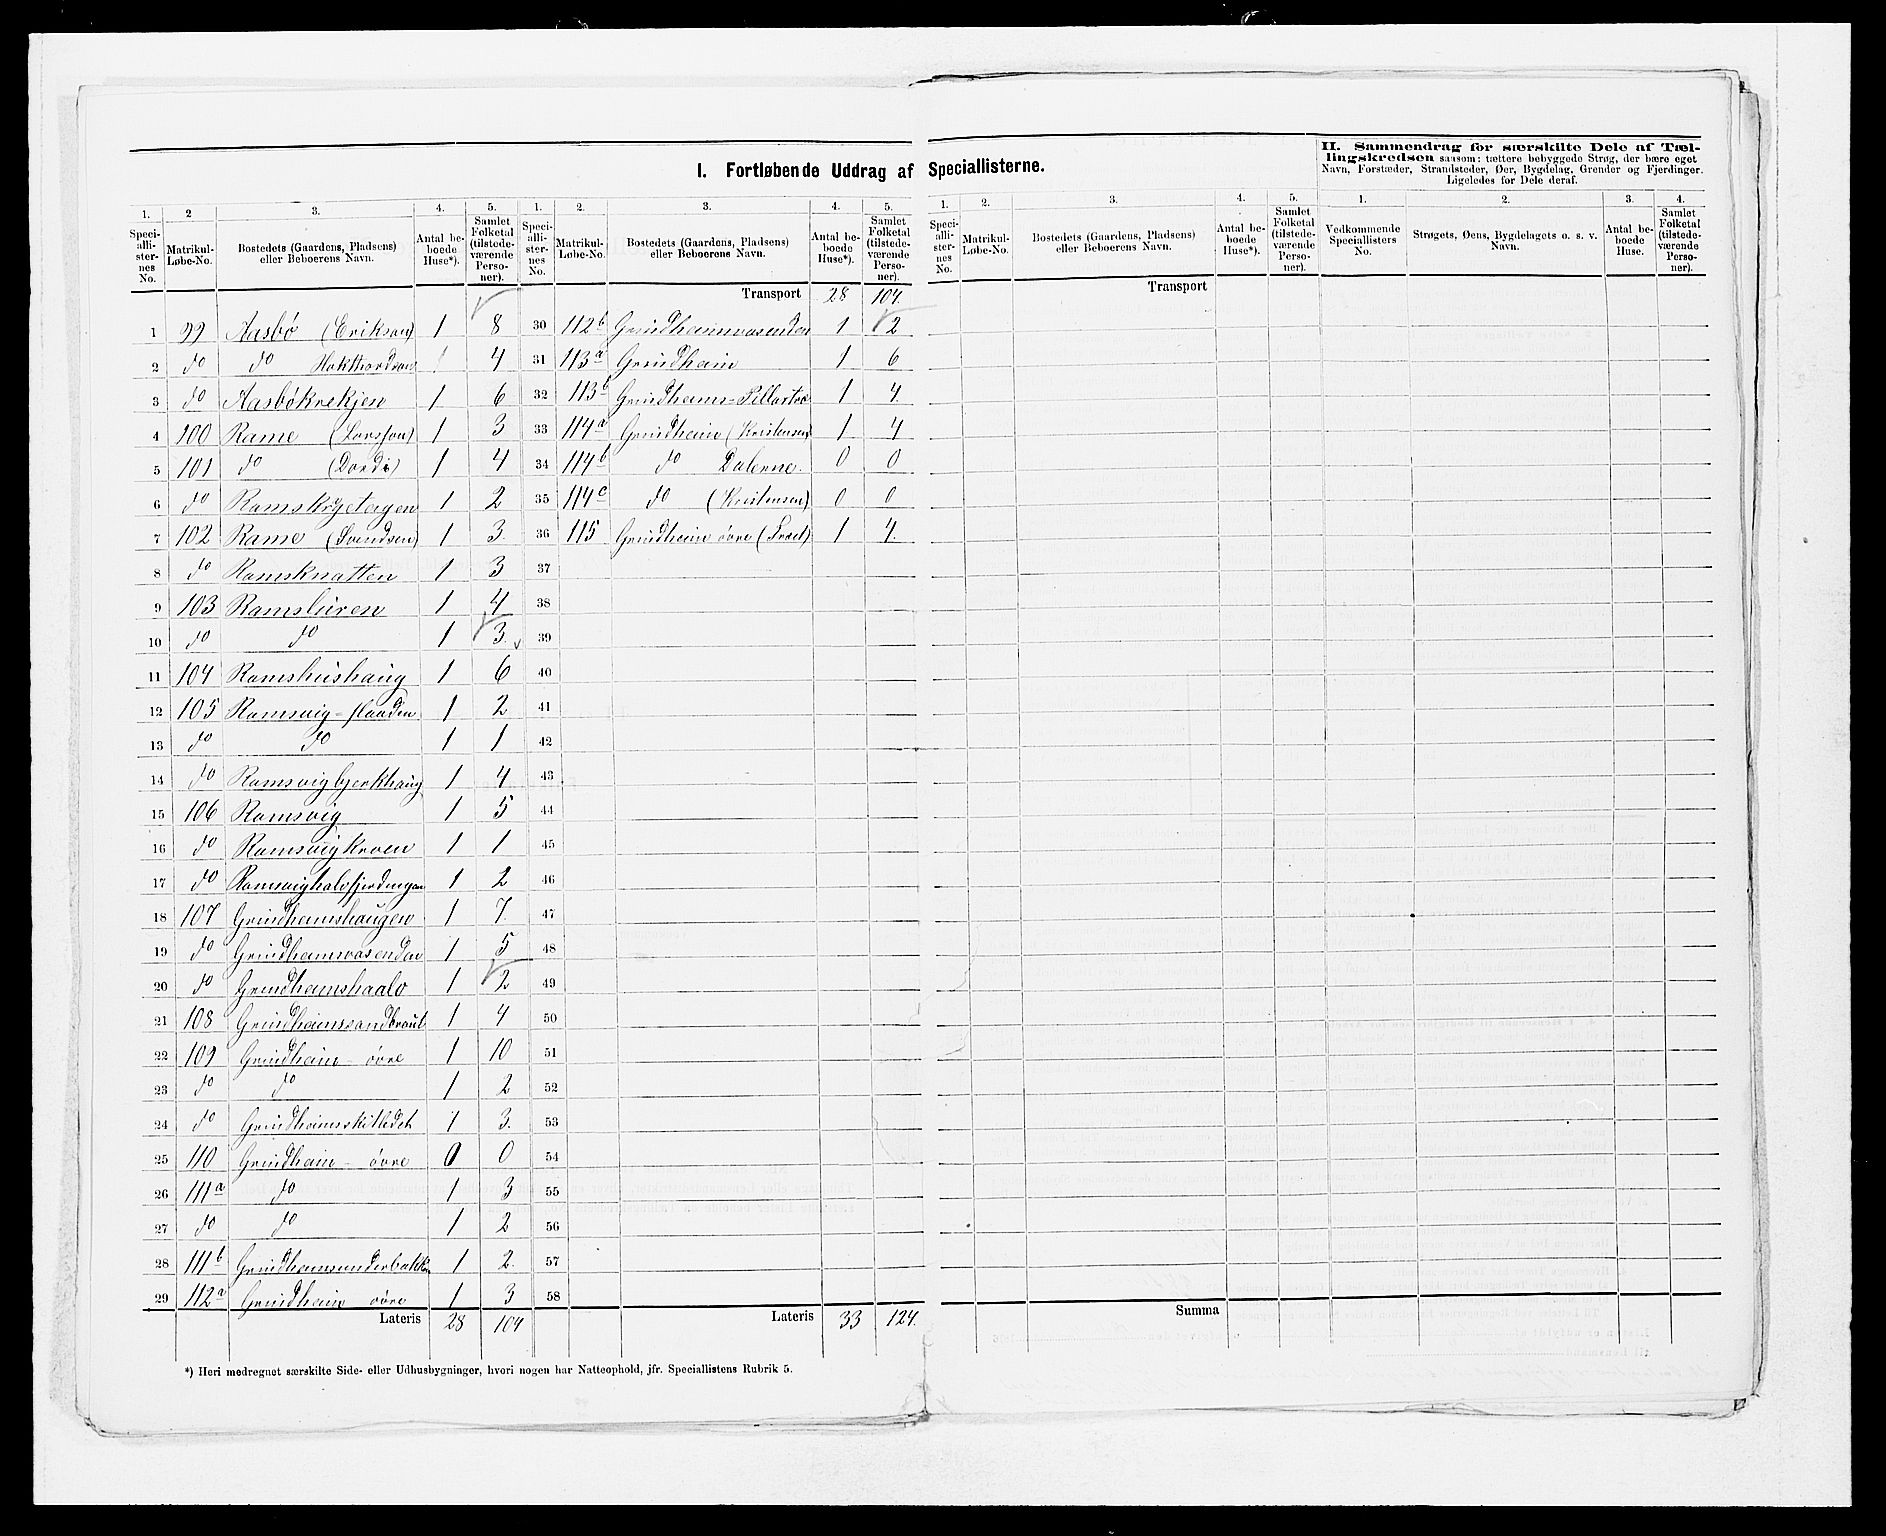 I. Fortløbende Uddrag af Speciallisterne.
II. Sammendrag for særskilte Dele af Tæl-
lingskredsen saasom: tættere bebyggede Strøg, der bære eget
Navn, Forstæder, Strandsteder, Øer, Bygdelag, Grender og Fjerdinger.
Ligeledes for Dele deraf.
1. 2 3. 4. 5. 1. 2. 3. 4. 5. 1. 2. 3. 4. 5. 1. 2. 3. 4.
Speciallisternes No. Matrikul-Løbe-No. Bostedets (Gaardens, Pladsens) eller Beboerens Navn. Antal beboede Huse*). Samlet Folketal (tilstedeværende Personer).
Speciallisternes No. Matrikul-Løbe-No. Bostedets (Gaardens, Pladsens) eller Beboerens Navn. Antal beboede Huse*). Samlet Folketal (tilstedeværende Personer).
Speciallisternes No. Matrikul-Løbe-No. Bostedets (Gaardens, Pladsens) eller Beboerens Navn. Antal beboede Huse*). Samlet Folketal (tilstedeværende Personer).
Vedkommende Speciallisters No. Strøgets, Øens, Bygdelagets o. s. v. Navn. Antal beboede Huse. Samlet Folketal (tilstedeværende Personer).
Transport 28 104. Transport
1 99 Aasbø (Erikson) 1 8 30 112b Grindheimvasenden 1 2
2 do do 1 4 31 113a Grindheim 1 6
3 do Aasbøkrekjen 1 6 32 113b 1 4.
4 100 Rame 1 3 33 114a Grindheim (Kristensen) 1 4
5 101 do (Dordi) 1 4 34 114b do Dalenne. 0 0
6 do 1 2 35 114c do (Kristensen) 0 0
7 102 Rame (Svendsen) 1 3. 36 115 Grindheim øvre 1 4.
8 do Ramsknatten 1 3 37
9 103 Ramsluren 1 4 38
10 do do 1 3. 39
11 104 Ramshushaug 1 6 40
12 105 Ramsvig-flaaden 1 2 41
13 do do 1 1 42
14 do Ramsvigbjerkhaug 1 4 43
15 106 Ramsvig 1 5 44
16 do Ramsvigkroen 1 1 45
17 do Ramsvighalvfjerdingen 1 2 46
18 107 Grindheimshaugen 1 7. 47
19 do Grindheimsvasenden 1 5 48
20 do Grindheimshaalo 1 2 49
21 108 1 4 50
22 109 Grindheim - øvre 1 10 51
23 do do 1 2 52
24 do Grindheimsskilledet 1 3. 53
25 110 Grindheim - øvre 0 0 54
26 111a do 1 3 55
27 do do 1 2 56
28 111b Grindheimsunderbakken 1 2. 57
29 112a Grindheim øvre 1 3 58
Lateris 28 104 Lateris 33 124. Summa
*) Heri medregnet særskilte Side- eller Udhusbygninger, hvori nogen har Natteophold, jfr. Speciallistens Rubrik 5.